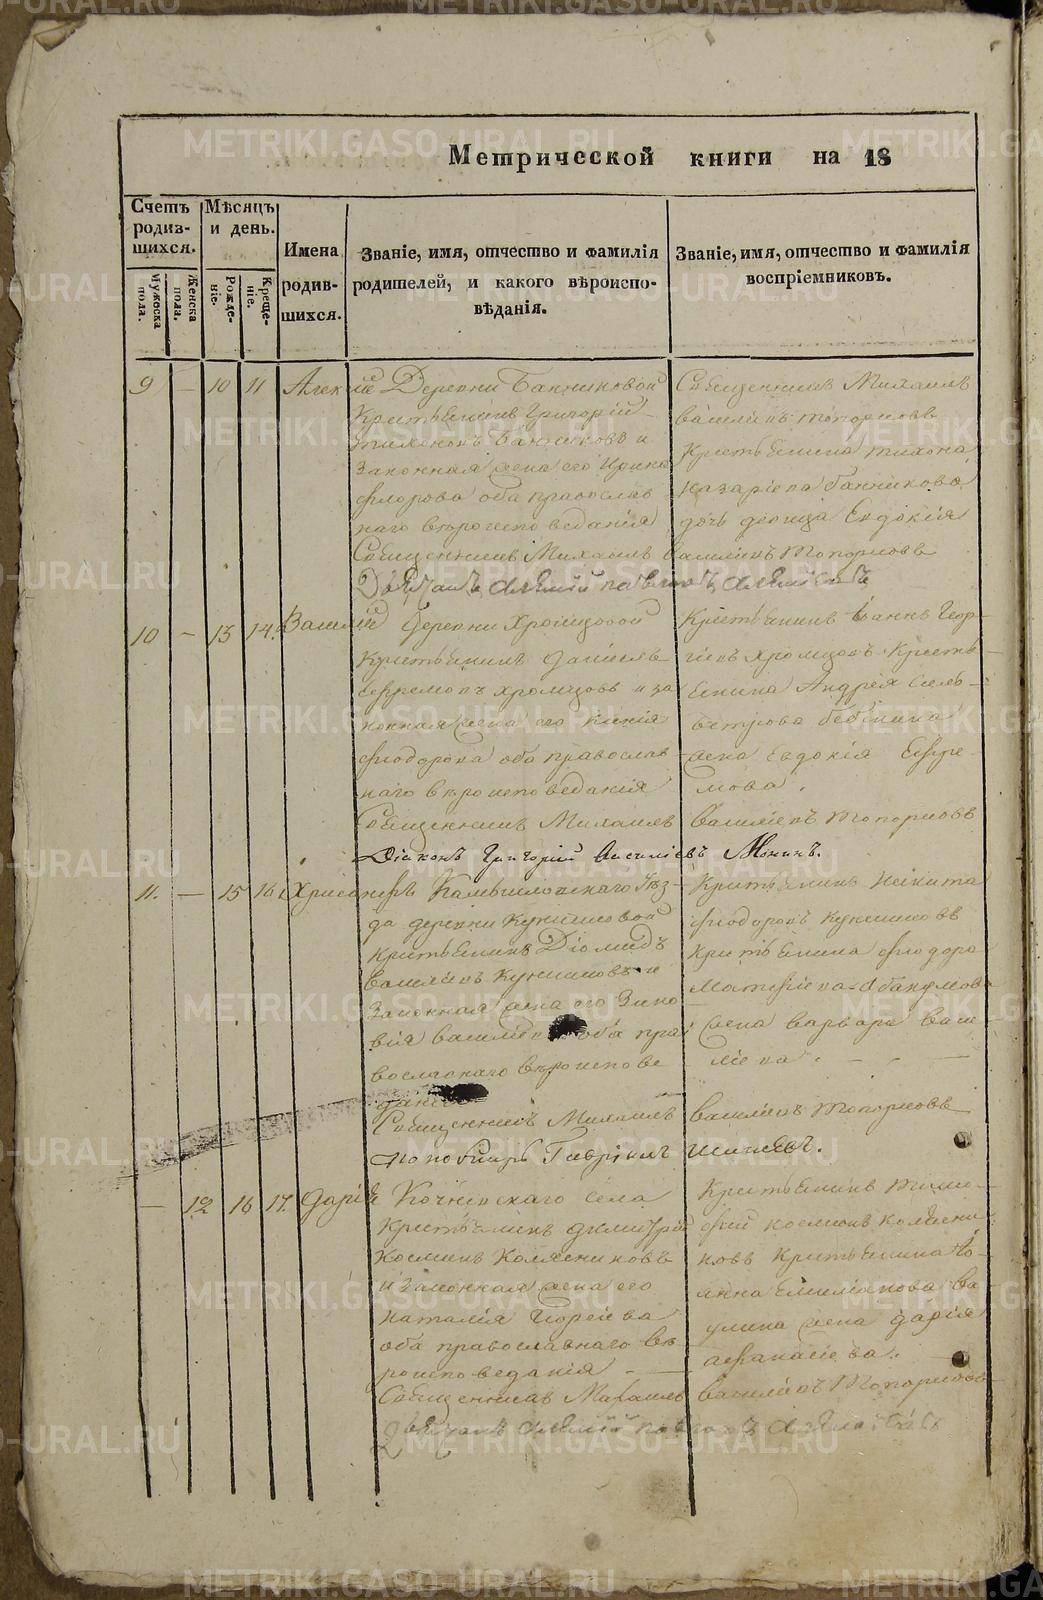 Метрической книги на 18
Счетъ родившихся.
Мужеска пола.
Женска пола.
Мѣсяцъ и день.
Рожденіе.
Крещеніе.
Имена родившихся.
Званіе, имя, отчество и фамилія
родителей, и какого вѣроиспо-
вѣданія.
Званіе, имя, отчество и фамилія
воспріемниковъ.
9 — 10 11 Алексій
Деревни Банниковой
Крестьянинъ Григорій
Тихоновъ Банниковъ и
Законная жена его Ирина
Флорова оба православ
наго вѣроисповеданія
Священникъ Михаилъ
Василіевъ Топорковъ
Крестьянина Тихона
Назаріева Банникова
дочь девица Евдокія
Священникъ Михаилъ Василіевъ Топорковъ
10 — 13 14. Василій
Деревни Хромцовой
Крестьянинъ Даніилъ
Ефремовъ Хромцовъ и за
конная жена его Ксенія
Фиодорова оба православ
наго вѣроисповеданія
Крестьянинъ Іоаннъ Геор-
гіевъ Хромцовъ Кресть-
янина Андрея Сель-
вестрова
жена Евдокія Ефре
мова.
Священникъ Михаилъ Василіевъ Топорковъ
Діаконъ Григорій Василіевъ Монинъ.
11. — 15 16 Христофоръ
Камышловскаго Уѣз-
да деревни
Крестьянинъ Діомидъ
Василіевъ
Законная жена его Зино
вія Василіева оба пра
вославнаго вѣроиспове
данія
Крестьянинъ Никита
Фиодоровъ
Крестьянина Фиодора
Матфіева Абакумова
жена Варвара Васи
ліева. — . —
Священникъ Михаилъ Василіевъ Топорковъ
Пономарь Гавріилъ
— 12 16 17. Дарія
Кочневскаго Села
Крестьянинъ Димитрій
Косминъ Колясниковъ
и Законная жена его
Наталія Георгіева
оба православнаго вѣ
роисповеданія
Крестьянинъ Тимо-
фей Косминъ Колясни-
ковъ Крестьянина Іо-
анна Емиліанова Ва
улина жена Дарія
Афанасіева. —
Священникъ Михаилъ Василіевъ Топорковъ
METRIKI.GASO-URAL.RU